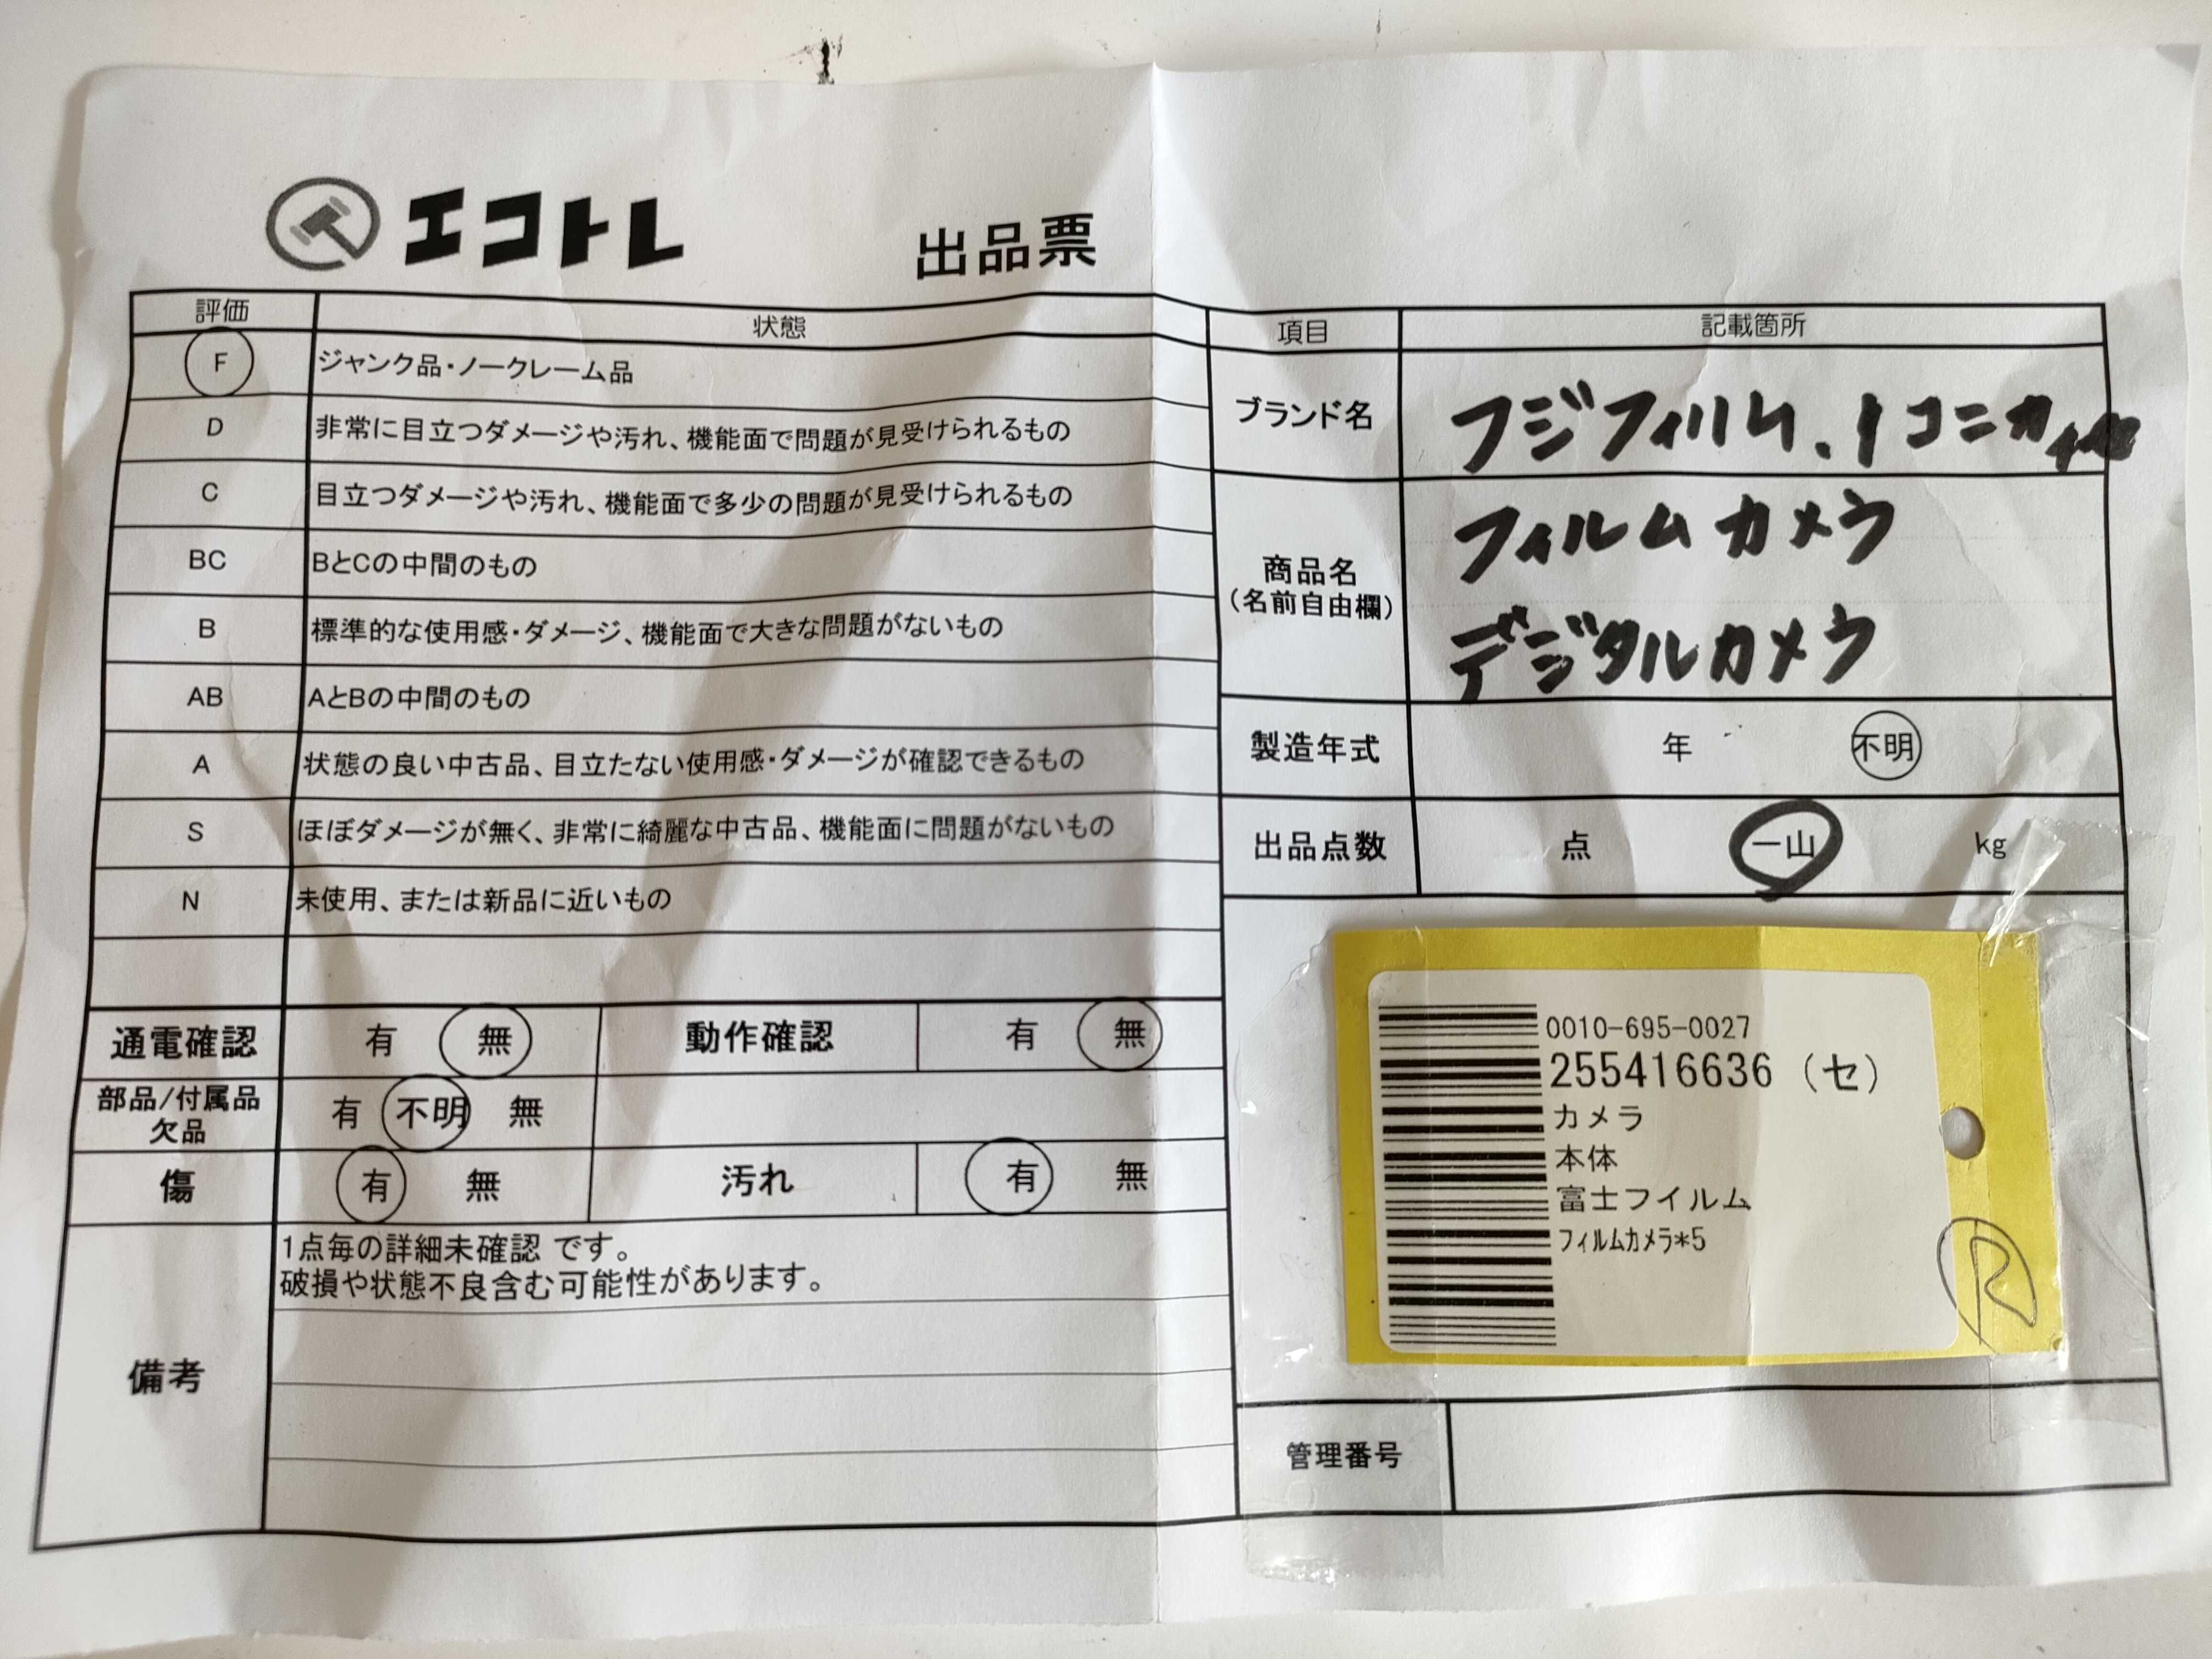 エコトレ 出品票
評価 状態
F ジャンク品・ノークレーム品
D 非常に目立つダメージや汚れ、機能面で問題が見受けられるもの
C 目立つダメージや汚れ、機能面で多少の問題が見受けられるもの
BC BとCの中間のもの
B 標準的な使用感・ダメージ、機能面で大きな問題がないもの
AB AとBの中間のもの
A 状態の良い中古品、目立たない使用感・ダメージが確認できるもの
S ほぼダメージが無く、非常に綺麗な中古品、機能面に問題がないもの
N 未使用、または新品に近いもの
通電確認 有 無 動作確認 有 無
部品/付属品
欠品 有 不明 無
傷 有 無 汚れ 有 無
備考
1点毎の詳細未確認 です。
破損や状態不良含む可能性があります。
項目 記載箇所
ブランド名 フジフィルム、コニカ
商品名
(名前自由欄)
フィルムカメラ
デジタルカメラ
製造年式 年 不明
出品点数 点 一山 kg
0010-695-0027
255416636 (セ)
カメラ
本体
富士フイルム
フィルムカメラ*5
R
管理番号